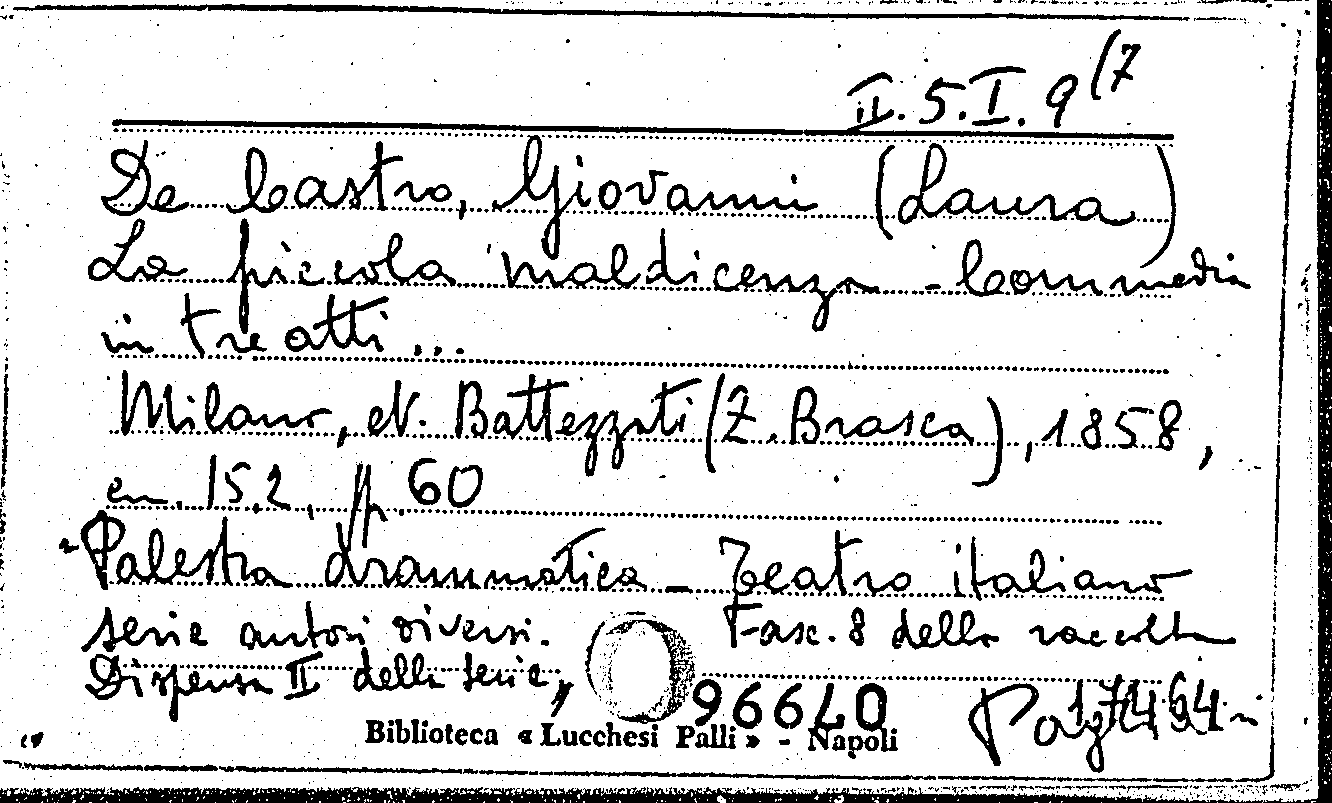 II.5.I.9(7
De Castro, Giovanni (Laura)
La piccola maldicenza - Commedia
in tre atti...
Milano, N. Battezzati (Z. Brasca), 1858,
cm. 15,2, pp. 60
"Palestra drammatica - Teatro italiano
serie autori diversi. Fasc. 8 della raccolta
Dispensa II della serie,"
96640
Biblioteca « Lucchesi Palli » - Napoli